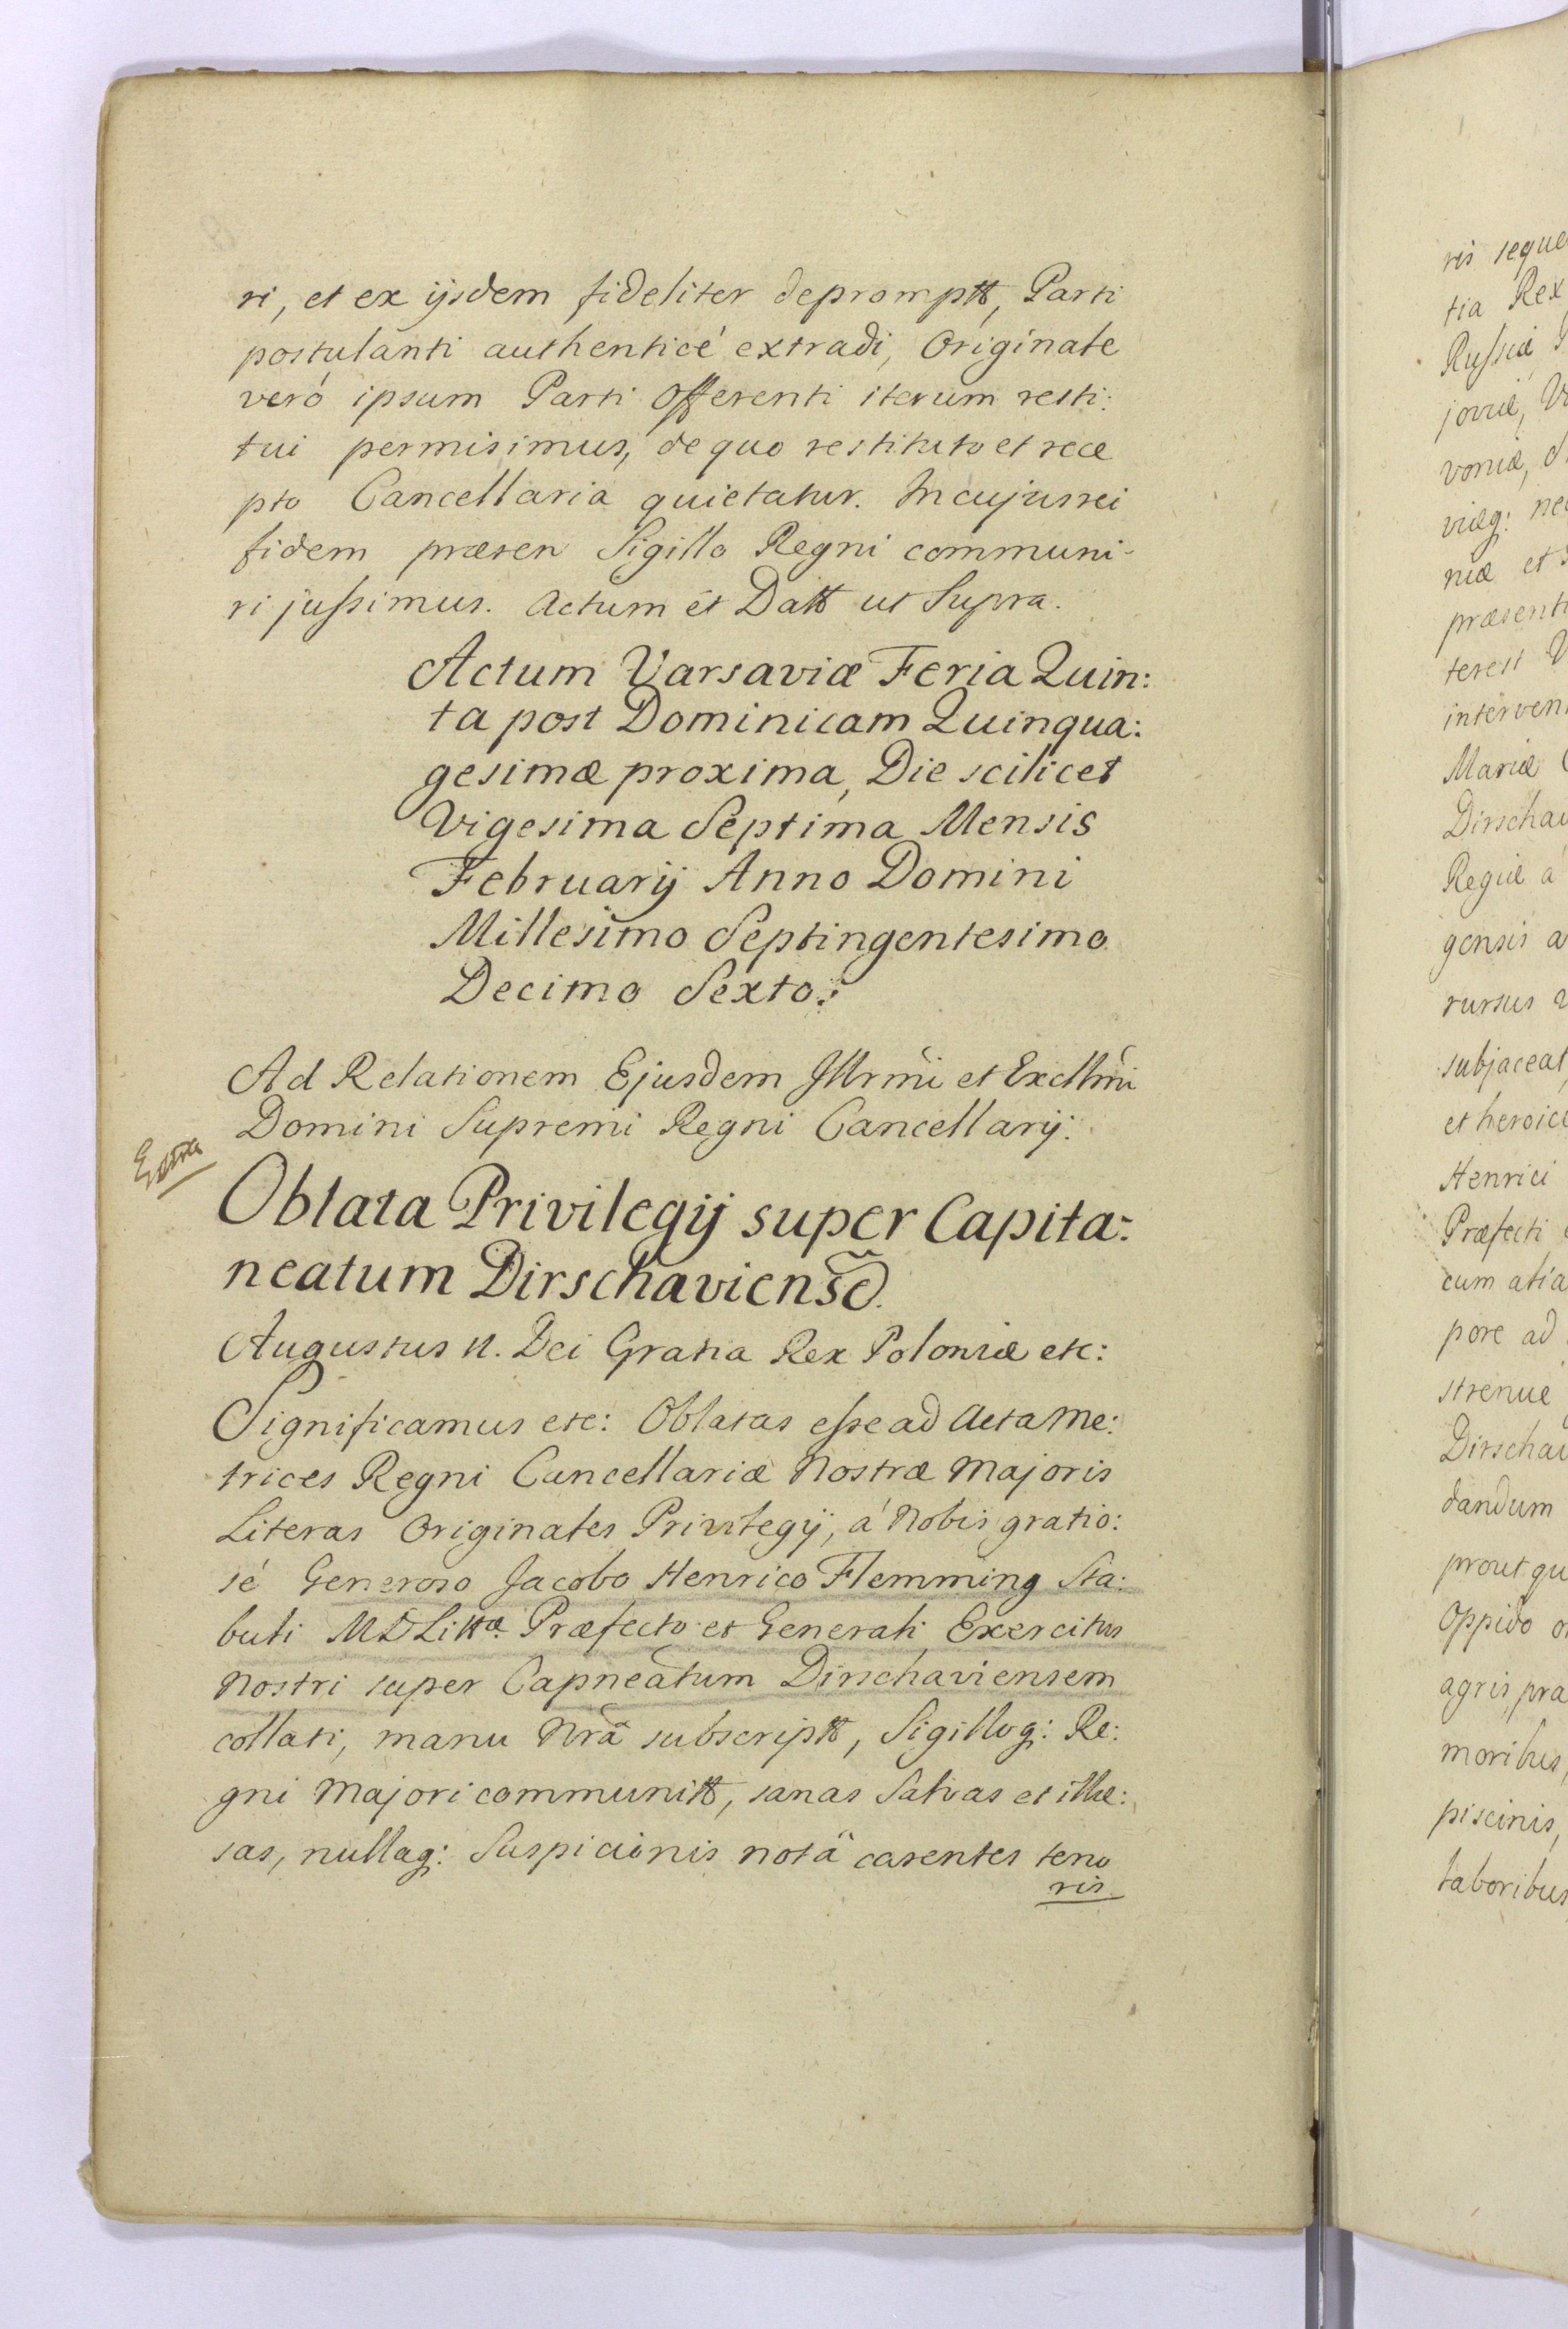 ri, et ex ijsdem fideliter depromptt, Parti
postulanti authenticé extradi, Originale
veró ipsum Parti Offerenti iterum resti:
tui permisimus, de quo restituto et rece
pto Cancellaria quietatur. In cujus rei
fidem præsen Sigillo Regni communi-
ri jussimus. Actum et Datt ut Supra.
Actum Varsaviæ Feria Quin:
ta post Dominicam Quinqua:
gesimæ proxima, Die scilicet
Vigesima Septima Mensis
Februarij Anno Domini
Millesimo Septingentesimo
Decimo Sexto:
Ad Relationem Ejusdem Illrmi et Excllmi
Domini Supremi Regni Cancellarij.
Oblata Privilegij super Capita:
neatum Dirschaviens̃.
Augustus II. Dei Gratia Rex Poloniæ etc:
Significamus etc: Oblatas esse ad Acta Me:
trices Regni Cancellariæ Nostræ Majoris
Literas Originales Privilegij, á Nobis gratio:
sé Generoso Jacobo Henrico Flemming Sta:
buli MDLittæ Præfecto et Generali Exercitus
Nostri super Capneatum Dirschaviensem
collati, manu Nrâ subscriptt, Sigilloq: Re:
gni Majori communitt, sanas Salvas et illæ:
sas, nullaq: Suspicionis notâ carentes teno
ris.
ris seque
tia Rex
Russiæ
joviæ,
voniæ,
viæq:
niæ et
præsenti
terest
interven
Mariæ
Dirschav
Regiæ á
gensis a
rursus
subjaceat
et heroice
Henrici
Præfecti
cum alia
pore ad
strenue
Dirschav
dandum
prout qu
Oppido
agris, pra
moribus,
piscinis,
laboribus